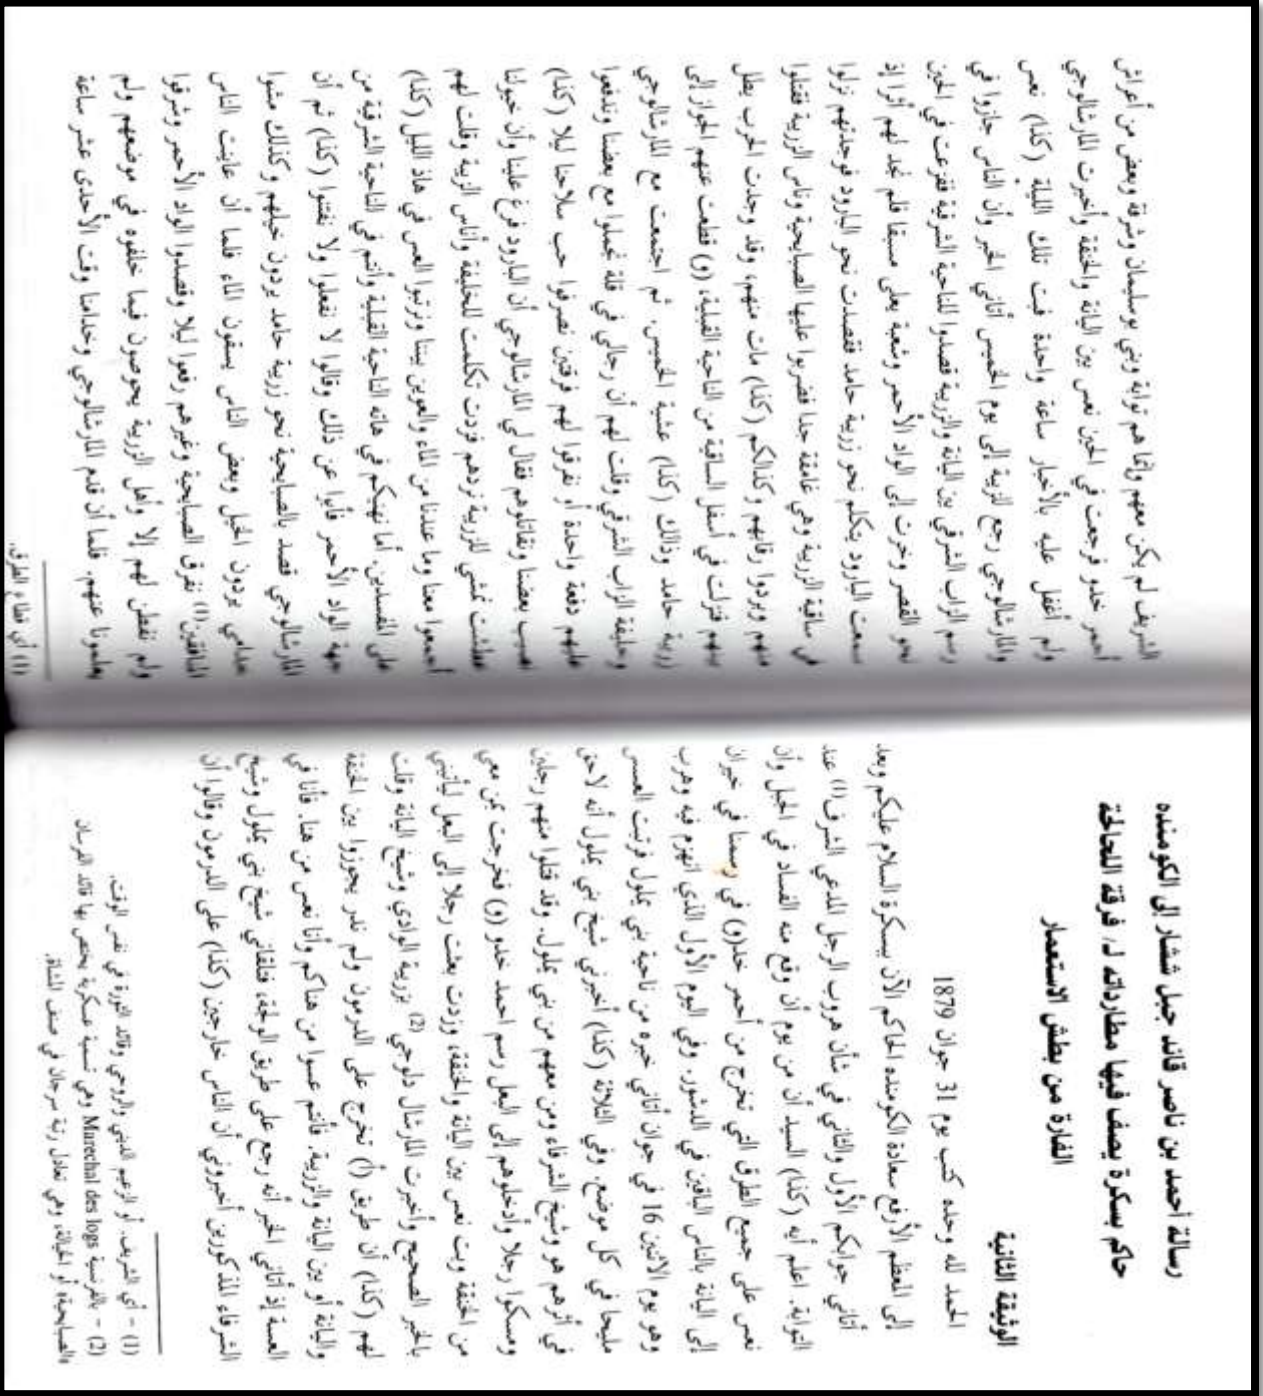 رسالة أحمد بن ناصر قائد جبل ششار إلى الكومنده
حاكم بسكرة يصف فيها مطارداته لـ فرقة اللحالحة
الفارة من بطش الاستعمار
الوثيقة الثانية
الحمد لله وحده كتب يوم 31 جوان 1879
إلى المعظم الأرفع سعادة الكومنده الحاكم الآن ببسكرة السلام عليكم وبعد
أتاني جوابكم الأول والثاني في شأن هروب الرجل المدعي الشرف(1) عند
التوابة. اعلم أيه (كذا) السيد أن من يوم أن وقع منه الفساد في الجبل وأن
نعس على جميع الطرق التي تخرج من أحمر خد(و) في رسمنا في خيران
إلى اليانة بالناس الباقين في الدشور. وفي اليوم الأول الذي انهزم فيه وهرب
وهو يوم الاثنين 16 في جوان أتاني خبره من ناحية بني يملول فرتبت العسس
مليحا في كل موضع. وفي الثلاثة (كذا) أخبرني شيخ بني يملول أنه لاحق
في أثرهم هو وشيخ الشرفاء ومن معهم من بني يملول. وقد قتلوا منهم رجلين
ومسكوا رجلا وأدخلوهم إلى البعل رسم احمد خدو (و) فخرجت بمن معي
من الخنقة وبت نعس بين اليانة والخنقة، وزدت بعثت رجلا إلى البعل ليأتيني
بالخبر الصحيح وأخبرت المارشال دلوجي(2) بزريبة الوادي وشيخ اليانة وقلت
لهم (كذا) أن طريق (أ) تخرج على الدرمون ولم ندر يجوزوا بين الخنقة
واليانة أو بين اليانة والزريبة. فأنتم عسوا من هناكم وأنا نعس من هنا. فأنا في
العسة إذ أتاني الخبر أنه رجع على طريق الولجة، فتلقاني شيخ بني يملول وشيخ
الشرفاء المذكورين أخبروني أن الناس خارجين (كذا) على الدرمون وقالوا أن
(1) – أي الشريف. أو الزعيم الديني والروحي وقائد الثورة في نفس الوقت.
(2) – بالفرنسية Marechal des logs وهي نسبة عسكرية يختص بها قائد الفرسان
«الصبايحية» أو الخيالة، وهي تعادل رتبة سرجان في صنف المشاة.
الشريف لم يكن معهم وإنما هم توابة وبني بوسليمان وشرفة وبعض من أعراش
أحمر خدو فرجعت في الحين نعس بين اليانة والخنقة وأخبرت المارشالوجي
ولم أغفل عليه بالأخبار ساعة واحدة فبت تلك الليلة (كذا) نعس
والمارشالوجي رجع للزيبة إلى يوم الخميس أتاني الخبر وأن الناس جازوا في
رسم الزاب الشرقي بين اليانة والزريبة قصدوا للناحية الشرقية ففزعت في الحين
نحو القصر وخرت إلى الواد الأحمر وشعبة يعلى مسبقا فلم نجد لهم أثرا إذ
سمعت البارود يتكلم نحو زريبة حامد فقصدت نحو البارود فوجدتهم نزلوا
في ساقية الزريبة وهي غامقة جدا فضربوا عليها الصبايحية وناس الزريبة فقتلوا
منهم وبردوا رقابهم وكذالكم (كذا) مات منهم، وقد وجدت الحرب بطل
بينهم فنزلت في أسفل الساقية من الناحية القبلية، (و) قطعت عنهم الجواز إلى
زريبة حامد وذالك (كذا) عشية الخميس. ثم اجتمعت مع المارشالوجي
وخليفة الزاب الشرقي وقلت لهم أن رجالي في قلة نحملوا مع بعضنا وندفعوا
عليهم دفعة واحدة أو نفرقوا لهم فرقتين نصرفوا حب سلاحنا ليلا (كذا)
نصيب بعضنا ونقاتلوهم فقال لي المارشالوجي أن البارود فرغ علينا وأن خيولنا
عطشت نمشي للزريبة نردهم فزدت تكلمت للخليفة وأناس الزيبة وقلت لهم
أجمعوا معنا وما عندنا من الماء والعوين بيننا ونرتبوا العس في هاذ الليل (كذا)
على المفسدين. أما نهنيكم في هاته الناحية القبلية وأنتم في الناحية الشرقية من
جهة الواد الأحمر فأبوا عن ذلك وقالوا لا نفعلوا ولا نفتنوا (كذا) ثم أن
المارشالوجي قصد بالصبايحية نحو زريبة حامد يردون خيلهم وكذلك مشوا
خدامي يردون الخيل وبعض الناس يسقون الماء فلما أن عاينت الناس
المنافقين(1) تفرق الصبايحية وغيرهم رفعوا ليلا وقصدوا الواد الأحمر وشرقوا
ولم نفطن لهم إلا وأهل الزريبة يحوصون فيما خلفوه في موضعهم ولم
يعلمونا عنهم. فلما أن قدم المارشالوجي وخدامنا وقت الأحدى عشر ساعة
(1) أي قطاع الطرق.